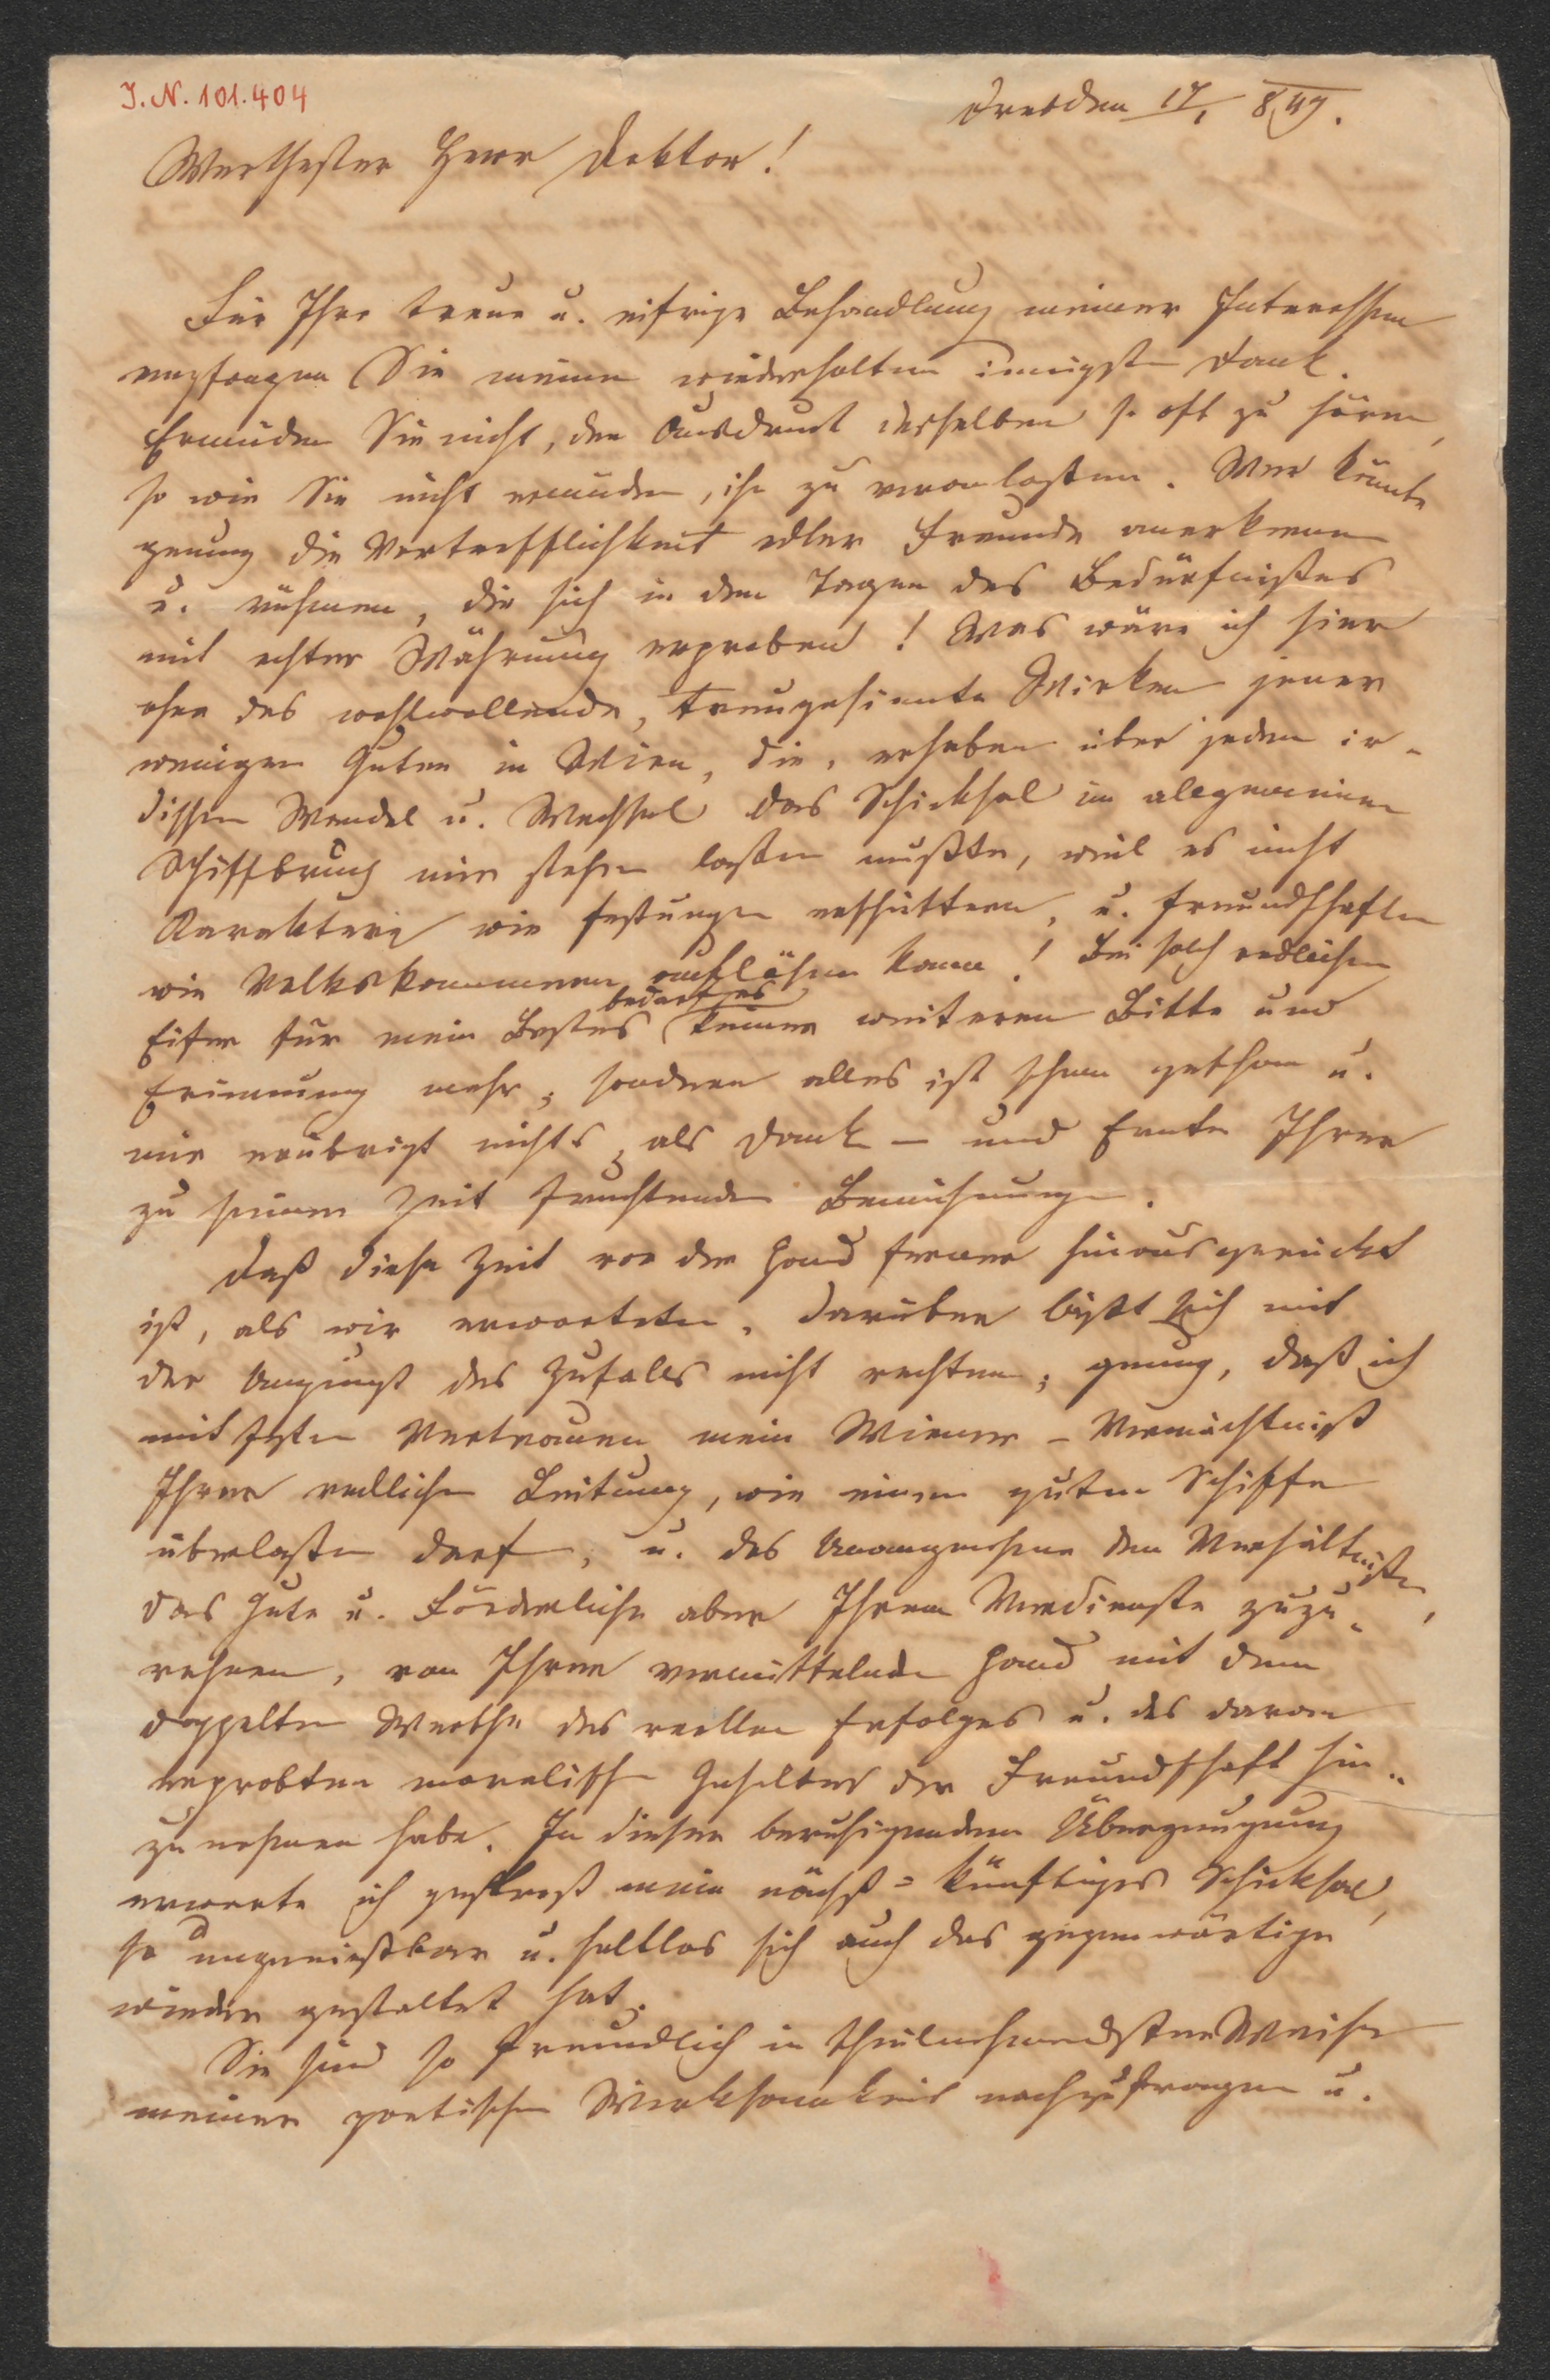 I.N. 101.404
Dresden 17/1 849.
Werthester Herr Doktor!
Für Ihre treue u. eifrige Behandlung meiner Interessen
empfangen Sie meinen wiederholten innigsten Dank.
Ermüden Sie nicht, den Ausdruck desselben so oft zu hören,
so wie Sie nicht ermüden, ihn zu veranlassen. Wer könnte
genug die Vortrefflichkeit edler Freunde anerkennen
u. rühmen, die sich in den Tagen des Bedürfnißes
mit echter Währung erproben! Was wäre ich hier
ohne das wohlwollende, treugesinnte Wirken jener
wenigen Guten in Wien, die, erhaben über jeden ir-
dischen Wandel u. Wechsel das Schicksal im allgemeinen
Schiffbruch mir stehen lassen mußte, weil es nicht
Karaktere wie Festungen erschüttern, u. Freundschaften
wie Volkskammern auflösen kann! Bei solch redlichem
Eifer für mein Bestes bedarf es keiner weiteren Bitte und
Erinnerung mehr, sondern alles ist schon gethan u.
mir erübrigt nichts, als Dank – und Ernte Ihrer
zu seiner Zeit fruchtenden Bemühungen.
Daß diese Zeit vor der Hand ferner hinausgerückt
ist, als wir erwarteten, darüber läßt sich mit
der Ungunst des Zufalls nicht rechten; genug, daß ich
mit festem Vertrauen mein Wiener-Vermächtniß
Ihrer redlichen Leitung, wie einem guten Schiffe
überlassen darf, u. das Unangenehme den Verhältnißen,
das Gute u. Förderliche aber Ihrem Verdienste zuzu-
rechnen, von Ihrer vermittelnden Hand mit dem
doppelten Werthe des reellen Erfolges u. des daran
erprobten moralischen Gehaltes der Freundschaft hin-
zunehmen habe. In dieser beruhigenden Überzeugung
erwarte ich getrost mein nächst-künftiges Schicksal,
so ungenießbar u. haltlos sich auch das gegenwärtige
wieder gestaltet hat.
Sie sind so freundlich in theilnehmendster Weise
meiner poetischen Wirksamkeit nachzufragen u.